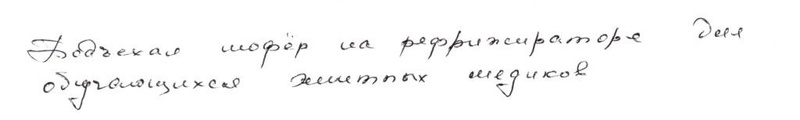 Подъехал шофёр на рефрижераторе для
обучающихся элитных медиков